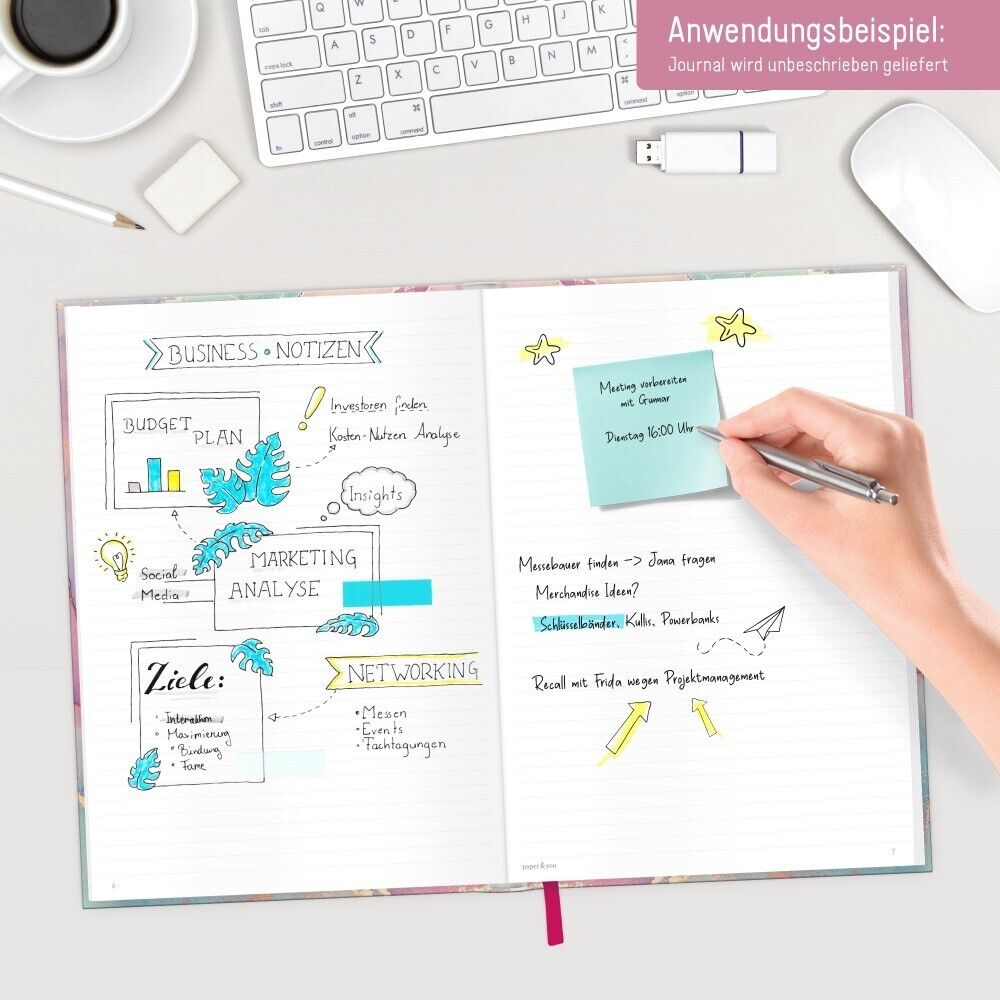 Anwendungsbeispiel:
Journal wird unbeschrieben geliefert
tab
Q
A
S
D
F
G
H
J
K
caps lock
Z
X
C
V
B
N
M
shift
fn
control
alt
option
command
command
option
BUSINESS • NOTIZEN
BUDGET
PLAN
Investoren finden
Kosten-Nutzen Analyse
Insights
MARKETING
ANALYSE
Social
Media
Ziele:
Interaktion
Maximierung
Bindung
Fame
NETWORKING
• Messen
• Events
• Fachtagungen
6
Meeting vorbereiten
mit Gunnar
Dienstag 16:00 Uhr
Messebauer finden –> Jana fragen
Merchandise Ideen?
Schlüsselbänder, Kullis, Powerbanks
Recall mit Frida wegen Projektmanagement
paper&you
7